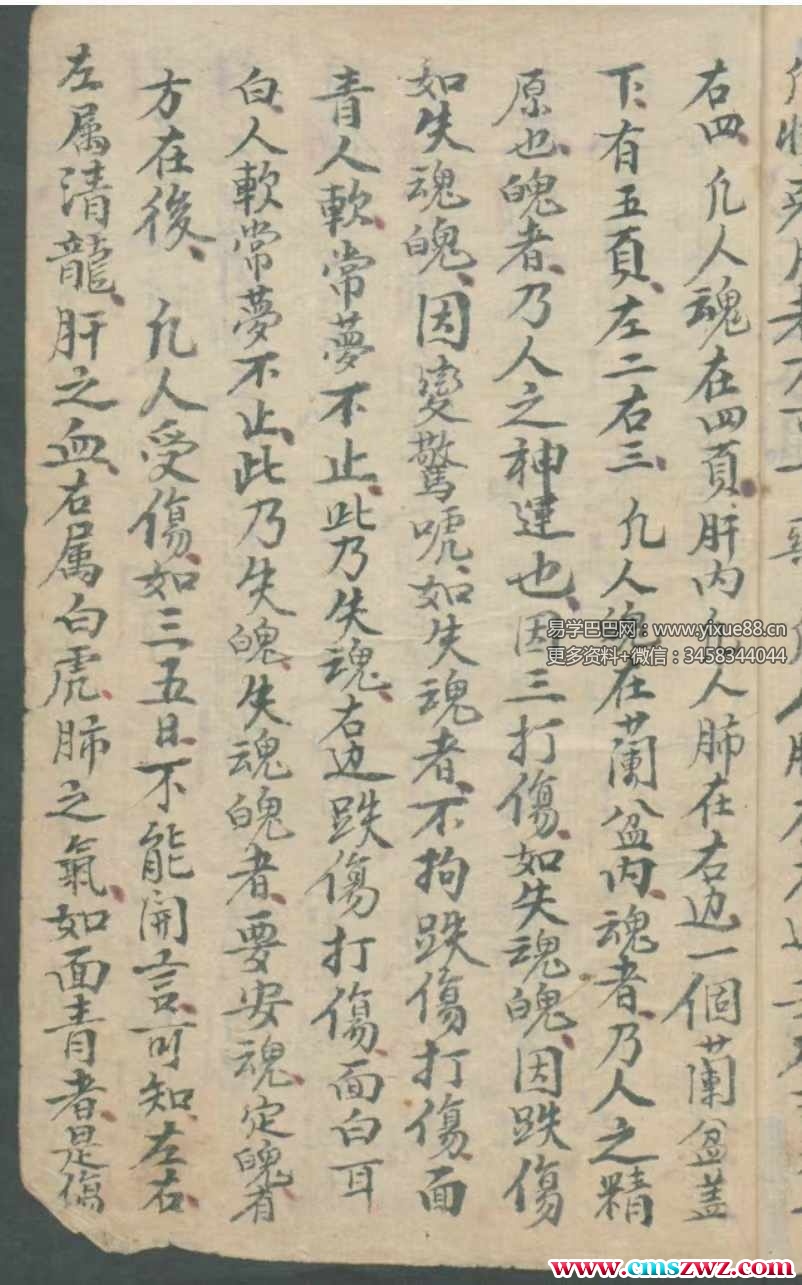 右四、凡人魂在四頁肝内凡人肺在右边一個蘭盆蓋
下、有五頁、左二右三、凡人魄在蘭盆内、魂者、乃人之精
原也、魄者、乃人之神運也、因三打傷、如失魂魄、因跌傷
如失魂魄、因变驚唬、如失魂者、不拘跌傷打傷、面
青人軟、常夢不止、此乃失魂、右边跌傷打傷、面白耳
白、人軟常夢不止、此乃失魄、失魂魄者、要安魂、定魄、有
方在後、凡人受傷、如三五日、不能開言、可知、左右、
左属清龍、肝之血、右属白虎、肺之氣、如面青者、是傷
易学巴巴网：www.yixue88.cn
更多资料+微信：3458344044
www.cmszwz.com